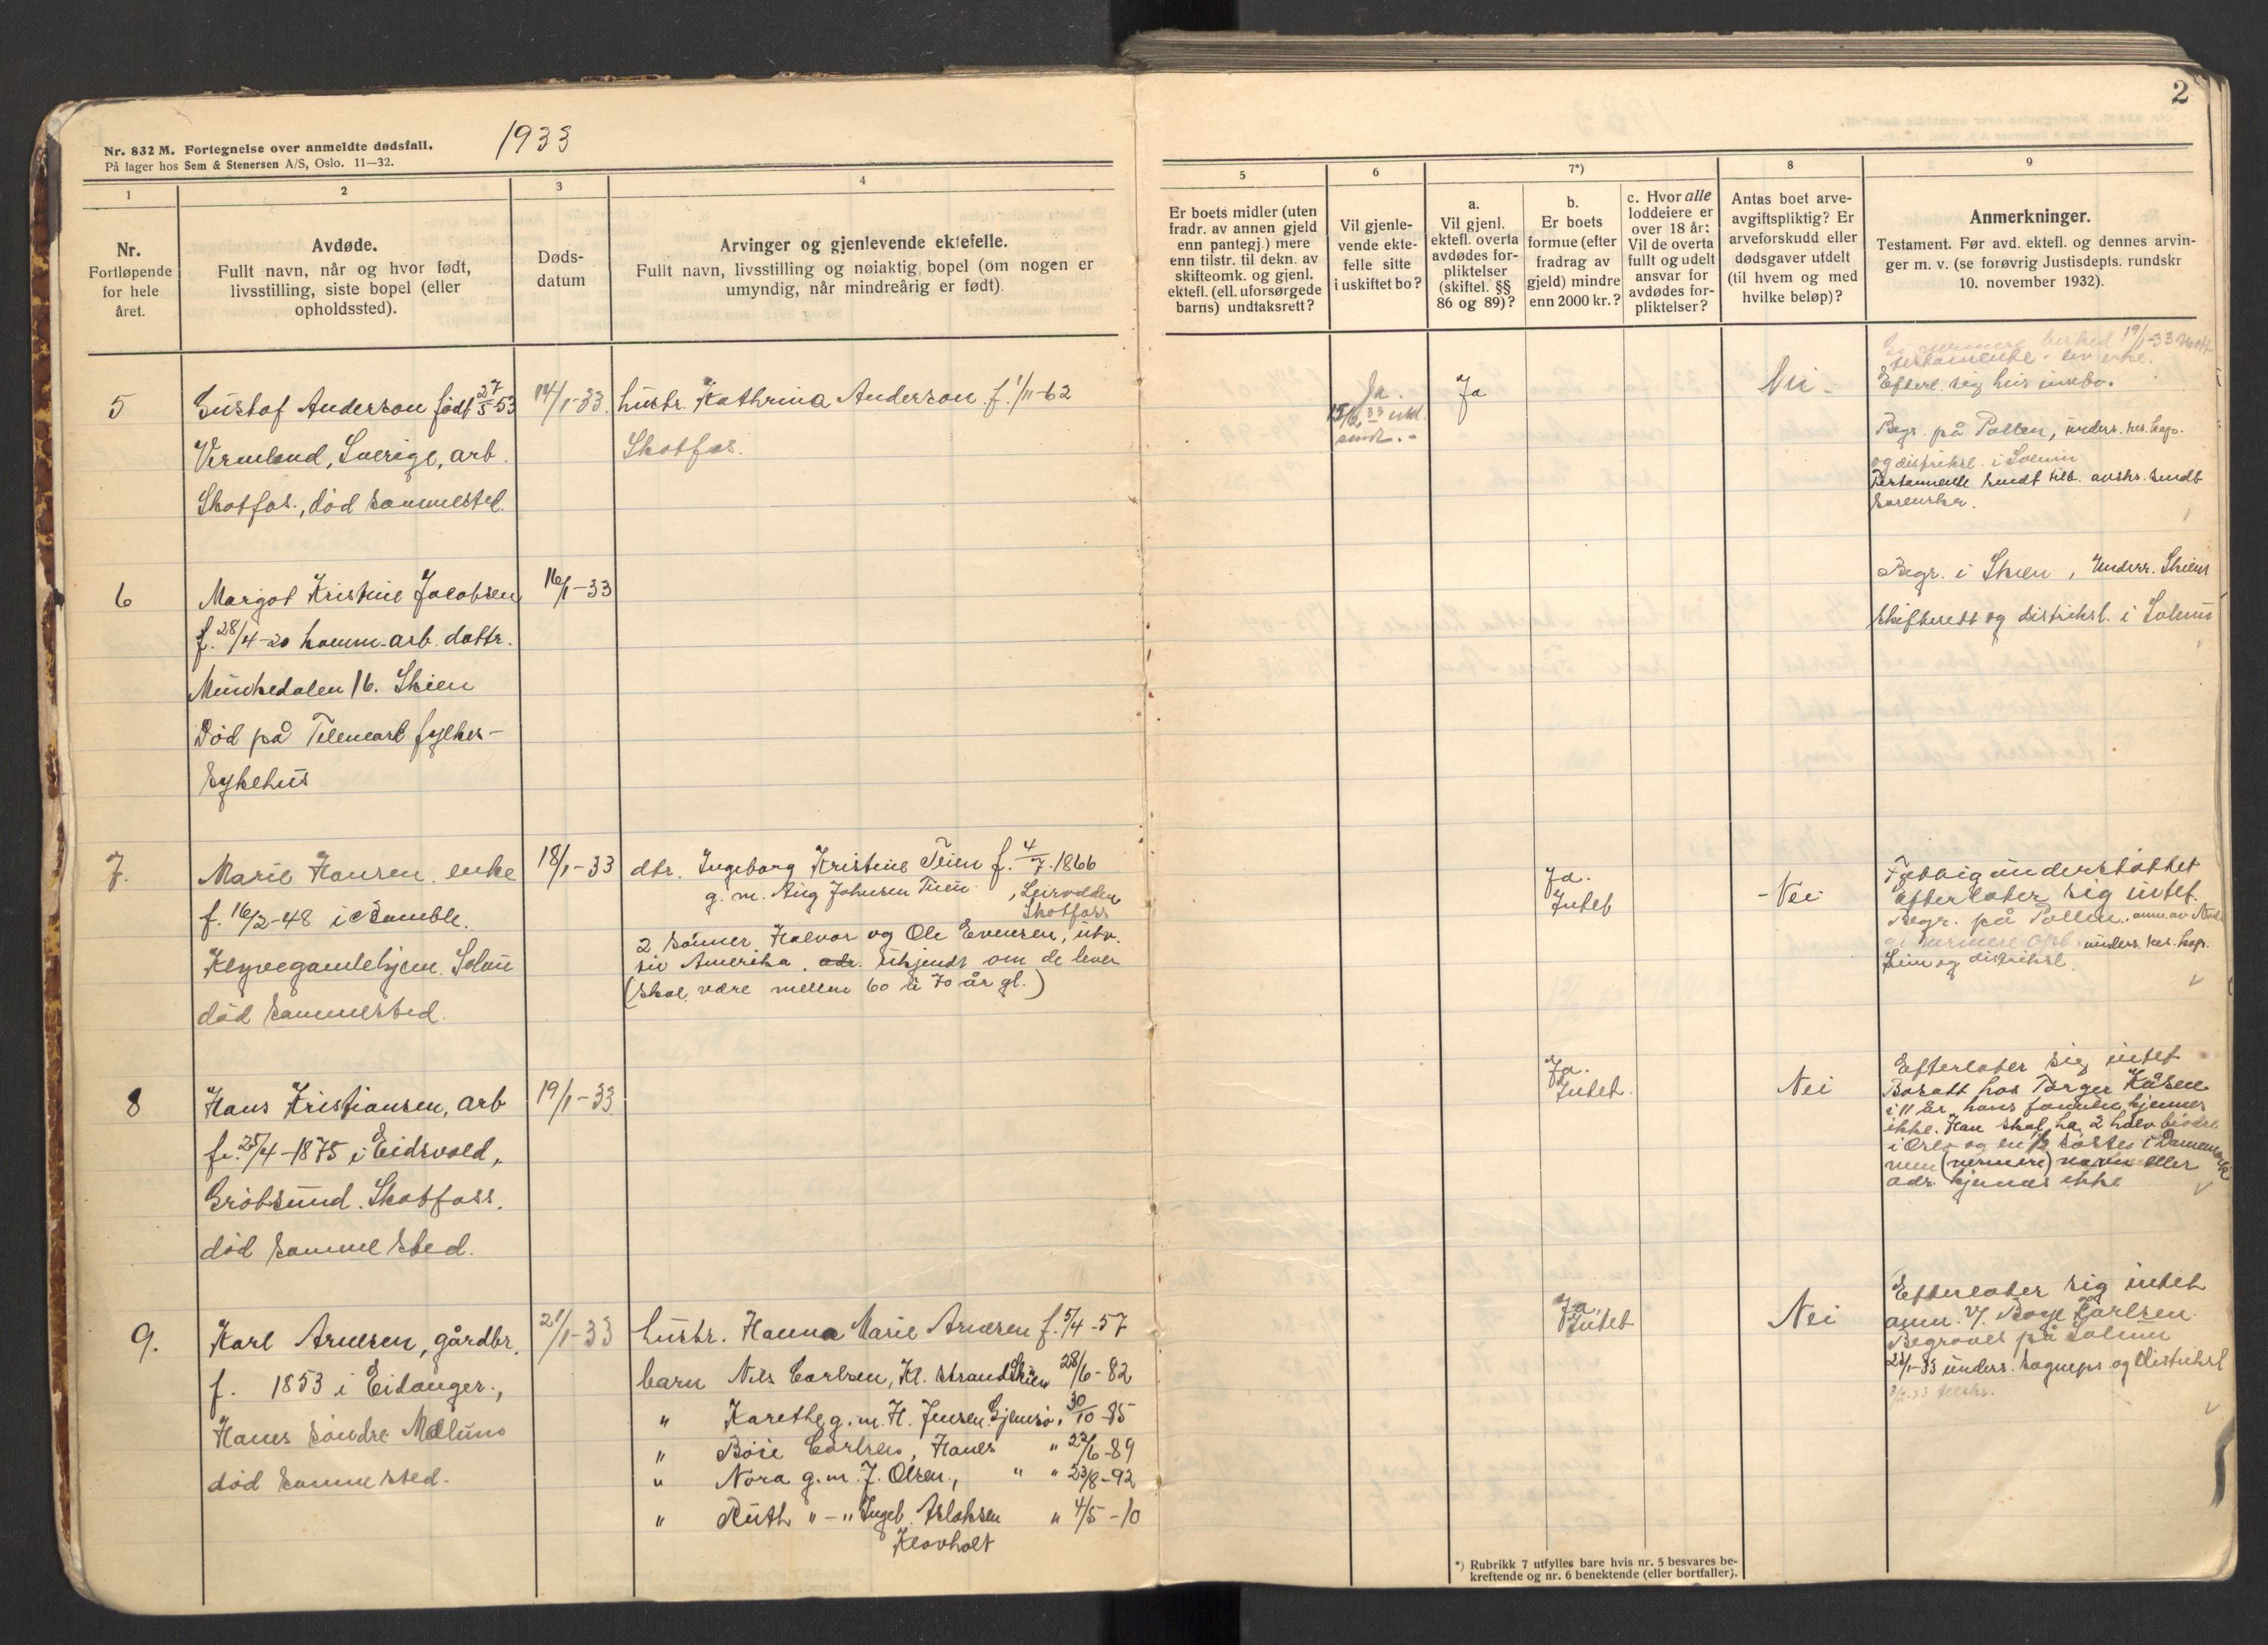 Nr. 832 M. Fortegnelse over anmeldte dødsfall.
På lager hos Sem & Stenersen A/S, Oslo. 11—32.
1933
1
2
3
4
Nr.
Fortløpende
for hele
året.
Avdøde.
Fullt navn, når og hvor født,
livsstilling, siste bopel (eller
opholdssted).
Døds-
datum
Arvinger og gjenlevende ektefelle.
Fullt navn, livsstilling og nøiaktig bopel (om nogen er
umyndig, når mindreårig er født).
2
5
6
7*)
8
9
Er boets midler (uten
fradr. av annen gjeld
enn pantegj.) mere
enn tilstr. til dekn. av
skifteomk. og gjenl.
ektefl. (ell. uforsørgede
barns) undtaksrett?
Vil gjenle-
vende ekte-
felle sitte
i uskiftet bo?
a.
Vil gjenl.
ektefl. overta
avdødes for-
pliktelser
(skiftel. §§
86 og 89)?
b.
Er boets
formue (efter
fradrag av
gjeld) mindre
enn 2000 kr.?
c. Hvor alle
loddeiere er
over 18 år:
Vil de overta
fullt og udelt
ansvar for
avdødes for-
pliktelser?
Antas boet arve-
avgiftspliktig? Er
arveforskudd eller
dødsgaver utdelt
(til hvem og med
hvilke beløp)?
Anmerkninger.
Testament. Før avd. ektefl. og dennes arvin-
ger m. v. (se forøvrig Justisdepts. rundskr
10. november 1932).
5
Gustaf Anderson født 27/5-53
Vermland, Sverige, arb.
Skotfos., død sammested.
14/1-33.
hustr. Kathrina Anderson f. 1/11-62
Skotfos.
Ja.
Ja
Nei -
19/1-33
Efterl. sig hus innbo.
Begr. på Pollen, unders. res. kap.
og distriksl. i Solum
Testamente sendt
6
Margot Kristine Jacobsen
f. 28/4-20 komm. arb. dattr.
Munkedalen 16. Skien
Død på Telemark fylkes-
sykehus
16/1-33
Begr. i Skien, Underr. Skiens
skifterett og distriksl. i Solum
7.
Marie Hansen, enke
f. 16/2-48 i Bamble.
Klyvegamlehjem. Solum
død sammested.
18/1-33
dtr. Ingeborg Kristine Teien f. 4/7-1866
g. m. Aug Johnsen Teien, Leirodden
Skotfoss
2 sønner Halvor og Ole Evensen, utv.
til Amerika, adr. ukjendt om de lever
(skal være mellem 60 à 70 år gl.)
Ja.
Intet
- Nei
Fattigunderstøttet
Efterlater sig intet.
Begr. på Pollen.
unders. res. kap.
og distriksl.
8
Hans Kristiansen, arb
f. 25/4-1875 i Eidsvold,
Grøtsund. Skotfoss.
død sammested.
19/1-33
Ja.
Intet.
Nei
Efterlater sig intet
Bosatt hos Torger Kåsen
i 11 år, hans familie kjennes
ikke. Han skal ha 2 halvbrødre
i Oslo og en 1/2 søster i Danmark
men (nærmere) navn eller
adr. kjennes ikke
9.
Karl Arnesen, gårdbr.
f. 1853 i Eidanger.,
Hanes søndre Mælum
død sammested.
21/1-33
hustr. Hanna Marie Arnesen f. 5/4-57
barn Nils Carlsen, Kl. strand Skien 28/6-82
" Karethe g. m. H. Jensen. Gjemsø. 30/10-85
" Boie Carlsen, Hanes " 22/6-89
" Nora g. m. J. Olsen., " " 23/8-92
" Ruth " - " Ingeb. Aslaksen " 4/5-10
Klovholt
Ja,
Intet
Nei
Efterlater sig intet
anm. v/ Boye Karlsen.
Begraves på Solum
unders. sognepr og distriksl
*) Rubrikk 7 utfylles bare hvis nr. 5 besvares be-
kreftende og nr. 6 benektende (eller bortfaller).